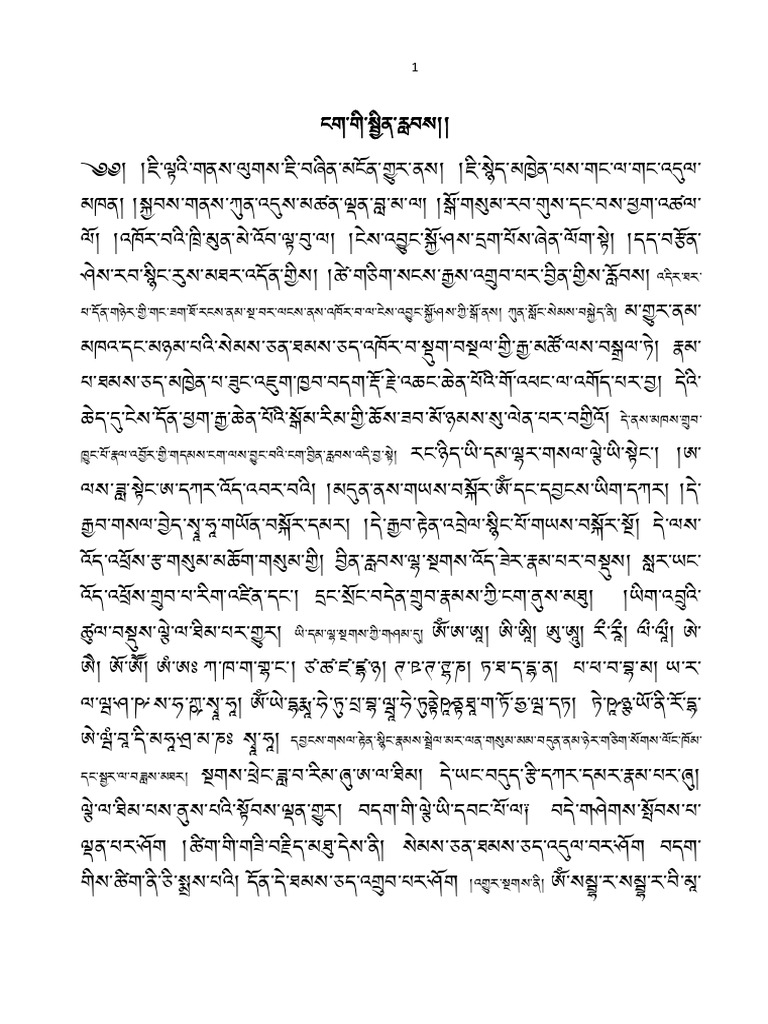 1
ངག་གི་སྦྱིན་རླབས།།
༄༅། །ཇི་ལྟའི་གནས་ལུགས་ཇི་བཞིན་མངོན་གྱུར་ནས། །ཇི་སྙེད་མཁྱེན་པས་གང་ལ་གང་འདུལ་
མཁན། །སྐྱབས་གནས་ཀུན་འདུས་མཚན་ལྡན་བླ་མ་ལ། །སྒོ་གསུམ་རབ་གུས་དང་བས་ཕྱག་འཚལ་
ལོ། །འཁོར་བའི་ཁྲི་མུན་མེ་འོབ་ལྟ་བུ་ལ། །ངེས་འབྱུང་སྐྱོ་ཤས་དྲག་པོས་ཞེན་ལོག་སྟེ། །དད་བརྩོན་
ཤེས་རབ་སྙིང་རུས་མཐར་འདོན་གྱིས། །ཚེ་གཅིག་སངས་རྒྱས་འགྲུབ་པར་བྱིན་གྱིས་རློབས། འདིར་ཐར་
པ་དོན་གཉེར་གྱི་གང་ཟག་ཐོ་རངས་ནམ་སྔ་བར་ལངས་ནས་འཁོར་བ་ལ་ངེས་འབྱུང་སྐྱོ་ཤས་ཀྱི་སྒོ་ནས། ཀུན་སློང་སེམས་བསྐྱེད་ནི། མ་གྱུར་ནམ་
མཁའ་དང་མཉམ་པའི་སེམས་ཅན་ཐམས་ཅད་འཁོར་བ་སྡུག་བསྔལ་གྱི་རྒྱ་མཚོ་ལས་བསྒྲལ་ཏེ། རྣམ་
པ་ཐམས་ཅད་མཁྱེན་པ་ཟུང་འཇུག་ཁྱབ་བདག་རྡོ་རྗེ་འཆང་ཆེན་པོའི་གོ་འཕང་ལ་འགོད་པར་བྱ། དེའི་
ཆེད་དུ་ངེས་དོན་ཕྱག་རྒྱ་ཆེན་པོའི་སྒོམ་རིམ་གྱི་ཆོས་ཟབ་མོ་ཉམས་སུ་ལེན་པར་བགྱིའོ། དེ་ནས་མཁས་གྲུབ་
ཁྱུང་པོ་རྣལ་འབྱོར་གྱི་གདམས་ངག་ལས་བྱུང་བའི་ངག་བྱིན་རླབས་འདི་བྱ་སྟེ། རང་ཉིད་ཡི་དམ་ལྷར་གསལ་ལྕེ་ཡི་སྟེང་། །ཨ་
ལས་ཟླ་སྟེང་ཨ་དཀར་འོད་འབར་བའི། །མདུན་ནས་གཡས་བསྐོར་ༀ་དང་དབྱངས་ཡིག་དཀར། །དེ་
རྒྱབ་གསལ་བྱེད་སྭཱ་ཧཱ་གཡོན་བསྐོར་དམར། །དེ་རྒྱབ་རྟེན་འབྲེལ་སྙིང་པོ་གཡས་བསྐོར་སྔོ། དེ་ལས་
འོད་འཕྲོས་རྩ་གསུམ་མཆོག་གསུམ་གྱི། བྱིན་རླབས་ལྷ་སྔགས་འོད་ཟེར་རྣམ་པར་བསྡུས། སླར་ཡང་
འོད་འཕྲོས་གྲུབ་པ་རིག་འཛིན་དང་། དྲང་སྲོང་བདེན་གྲུབ་རྣམས་ཀྱི་ངག་ནུས་མཐུ། །ཡིག་འབྲུའི་
ཚུལ་བསྡུས་ལྕེ་ལ་ཐིམ་པར་གྱུར། ཡི་དམ་ལྷ་སྔགས་ཀྱི་གཤམ་དུ། ༀ་ཨ་ཨཱ། ཨི་ཨཱི། ཨུ་ཨཱུ། རྀ་རཱྀ། ལྀ་ལཱྀ། ཨེ་
ཨཻ། ཨོ་ཨཽ། ཨཾ་ཨཿ ཀ་ཁ་ག་གྷ་ང་། ཙ་ཚ་ཛ་ཛྷ་ཉ། ཊ་ཋ་ཌ་ཌྷ་ཎ། ཏ་ཐ་ད་དྷ་ན། པ་ཕ་བ་བྷ་མ། ཡ་ར་
ལ་ཝ་ཤ་ཥ་ས་ཧ་ཀྵ་སྭཱ་ཧཱ། ༀ་ཡེ་དྷརྨཱ་ཧེ་ཏུ་པྲ་བྷ་ཝཱ་ཧེ་ཏུནྟེཥཱནྟ་ཐཱ་ག་ཏོ་ཧྱ་ཝ་དཏ། ཏེ་ཥཱཉྩ་ཡོ་ནི་རོ་དྷ་
ཨེ་ཝཾ་བཱ་དི་མཧཱ་ཤྲ་མ་ཎཿ སྭཱ་ཧཱ། དབྱངས་གསལ་རྟེན་སྙིང་རྣམས་སྦྲེལ་མར་ལན་གསུམ་མམ་བདུན་ནམ་ཉེར་གཅིག་སོགས་ལོང་ཁོམ་
དང་སྦྱར་ལ་བཟླས་མཐར། སྔགས་ཕྲེང་ཟླ་བ་རིམ་ཞུ་ཨ་ལ་ཐིམ། དེ་ཡང་བདུད་རྩི་དཀར་དམར་རྣམ་པར་ཞུ།
ལྕེ་ལ་ཐིམ་པས་ནུས་པའི་སྟོབས་ལྡན་གྱུར། བདག་གི་ལྕེ་ཡི་དབང་པོ་ལ༑ བདེ་གཤེགས་སྤོབས་པ་
ལྡན་པར་ཤོག །ཚིག་གི་གཟི་བརྗིད་མཐུ་དེས་ནི། སེམས་ཅན་ཐམས་ཅད་འདུལ་བར་ཤོག བདག་
གིས་ཚིག་ནི་ཅི་སྨྲས་པའི། དོན་དེ་ཐམས་ཅད་འགྲུབ་པར་ཤོག །འགྱུར་སྔགས་ནི། ༀ་སམྦྷ་ར་སམྦྷ་ར་བི་མཱ་